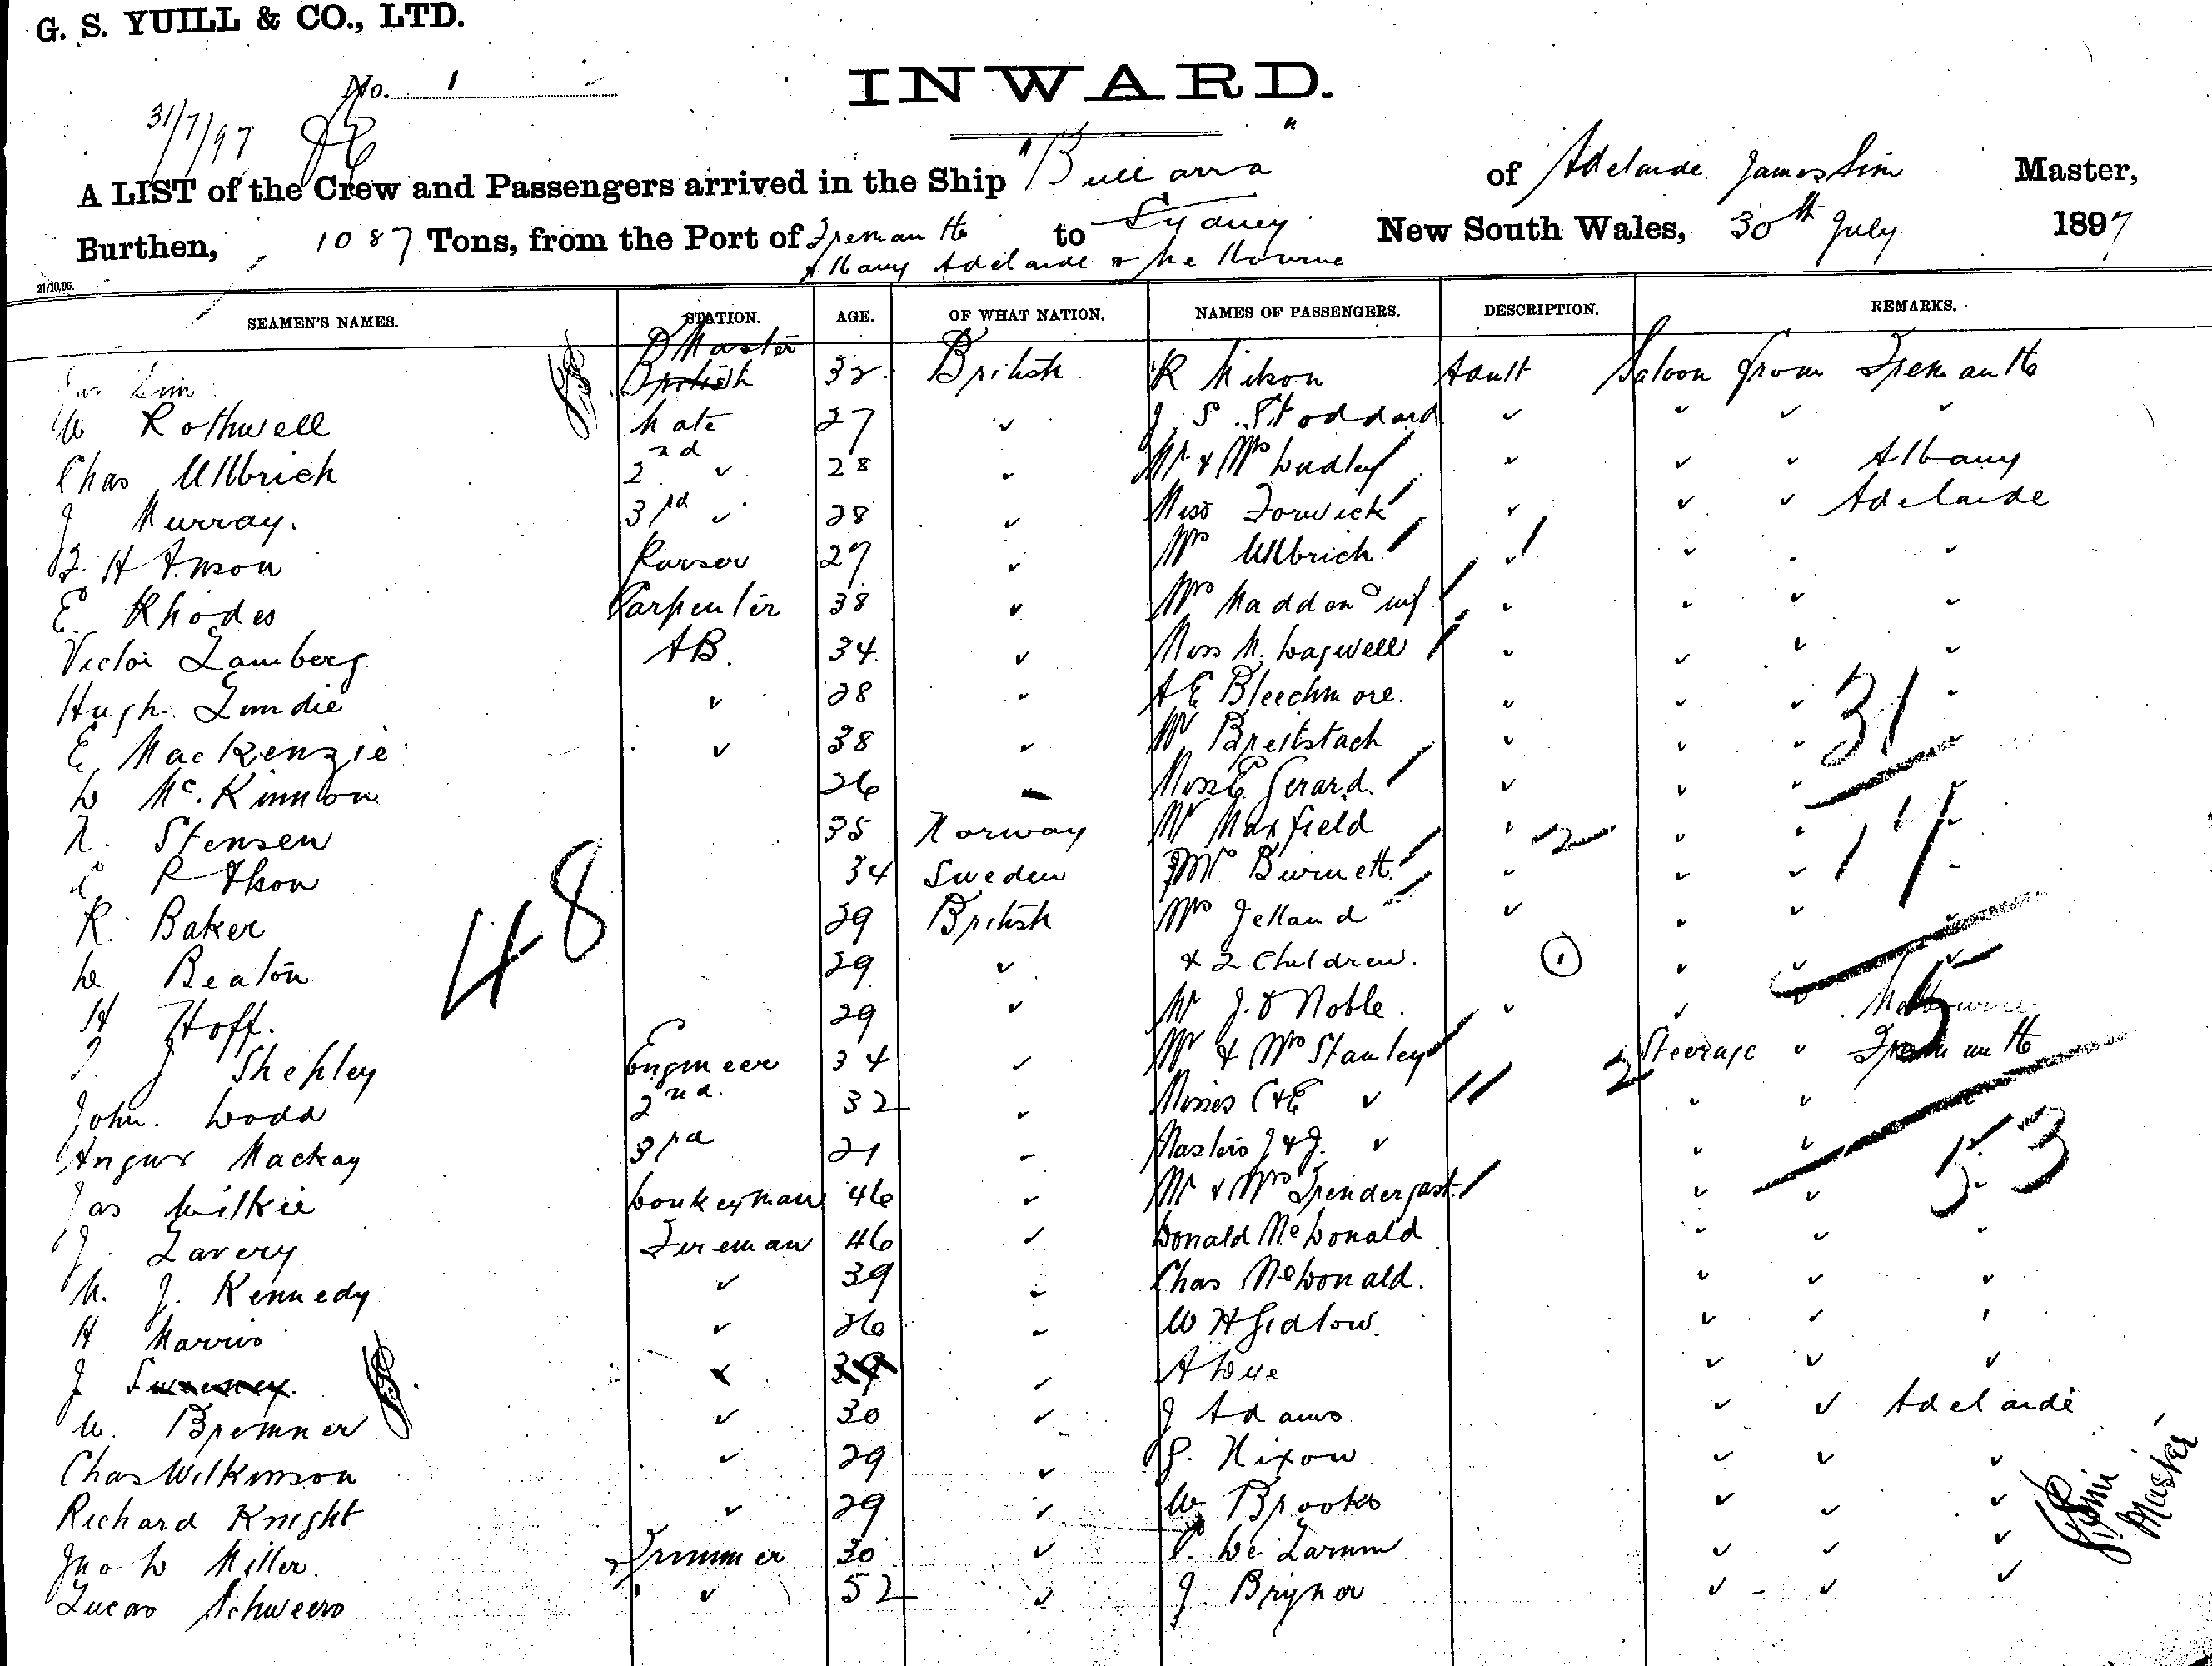 G. S. YUILL & CO., LTD.
No. 1
INWARD.
31/7/97
A LIST of the Crew and Passengers arrived in the Ship "Bullarra" of Adelaide James Sim Master,
Burthen, 1087 Tons, from the Port of Fremantle to Sydney New South Wales, 30th July 1897
Albany Adelaide & Melbourne
21/10,96.
SEAMEN'S NAMES. STATION. AGE. OF WHAT NATION. NAMES OF PASSENGERS. DESCRIPTION. REMARKS.
Master
Jas Sim British 32 British R Nilson Adult Saloon from Fremantle
W Rothwell Mate 27 ✓ J. S. Stoddard ✓ ✓ ✓ ✓
Chas Ullbrich 2nd ✓ 28 ✓ Mr & Mrs Dudley ✓ ✓ ✓ Albany
J Murray. 3rd ✓ 28 ✓ Miss Forwick ✓ ✓ ✓ Adelaide
H Anson Purser 27 ✓ Mrs Ullbrich ✓ ✓ ✓ ✓
E Rhodes Carpenter 38 ✓ Mrs Madden & inf ✓ ✓ ✓ ✓
Victor Lamberg AB. 34 ✓ Miss M. Dagwell ✓ ✓ ✓ ✓
Hugh Lundie ✓ 28 ✓ A E Bleechmore. ✓ ✓ ✓ ✓
31
E MacKenzie ✓ 38 ✓ Mr Breitstach ✓ ✓ ✓
D Mc.Kinnon 26 Miss E Gerard. ✓ ✓ ✓
N. Stensen 35 Norway Mr Maxfield ✓ 2 ✓ ✓ 14
34 Sweden Burnett ✓ ✓ ✓
R. Baker 29 British Mrs Jelland ✓ ✓ ✓
48
D Beaton 29 ✓ & 2 Children. 1 ✓ ✓
H Hoff. 29 ✓ Mr J. D Noble. ✓ ✓ Melbourne
5
J Shepley Engineer 34 ✓ Mr & Mrs Stanley 2 Steerage ✓ Fremantle
John. Dodd 2nd. 32 ✓ Misses C & E ✓ 11 ✓ ✓
Angus Mackay 3rd 21 ✓ Masters J & J. ✓ ✓ ✓ 53
Jas Milkie Donkeyman 46 ✓ Mr & Mrs Prendergast ✓ ✓
J. Lavery Fireman 46 ✓ Donald McDonald ✓ ✓ ✓
M. J. Kennedy ✓ 39 ✓ Chas McDonald. ✓ ✓ ✓
H Harris ✓ 26 ✓ W H Gidlow. ✓ ✓ ✓
J 39 ✓ A Dye ✓ ✓ ✓
W. Bremner ✓ 30 ✓ J Adams ✓ ✓ Adelaide
Chas Wilkinson ✓ 29 ✓ G. Nixon ✓ ✓ ✓
Richard Knight ✓ 29 ✓ W Brooks ✓ ✓ ✓
Jno D Miller. Trimmer 30 ✓ P. De Larum ✓ ✓ ✓
Lucas Schweers ✓ 52 ✓ J Bryner ✓ ✓ ✓
J Sim
Master